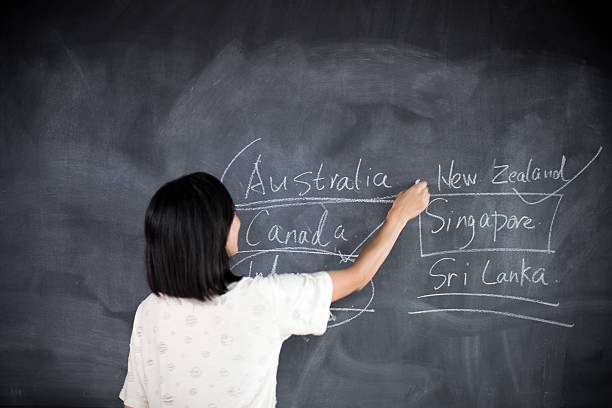 Australia
Canada
New Zealand
Singapore.
Sri Lanka.